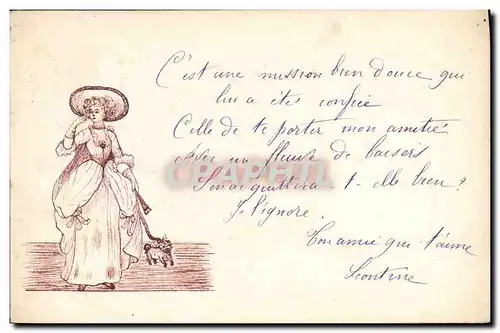 C'est une mission bien douce qui
lui a étés confiée
Celle de te porter mon amitié
Avec un fleuve de baisers
S'en acquittera-t-elle bien?
Je l'ignore.
Ton amie qui t'aime
Léontine
CPRPHIL